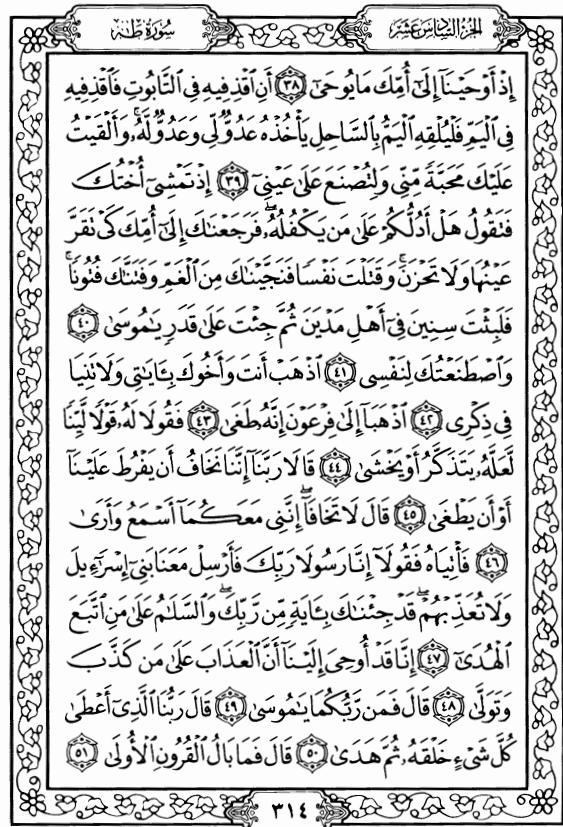 الجزء السادس عشر
سورة طه
إِذْ أَوْحَيْنَآ إِلَىٰٓ أُمِّكَ مَا يُوحَىٰٓ ﴿٣٨﴾ أَنِ ٱقْذِفِيهِ فِى ٱلتَّابُوتِ فَٱقْذِفِيهِ
فِى ٱلْيَمِّ فَلْيُلْقِهِ ٱلْيَمُّ بِٱلسَّاحِلِ يَأْخُذْهُ عَدُوٌّ لِّى وَعَدُوٌّ لَّهُۥ ۚ وَأَلْقَيْتُ
عَلَيْكَ مَحَبَّةً مِّنِّى وَلِتُصْنَعَ عَلَىٰ عَيْنِىٓ ﴿٣٩﴾ إِذْ تَمْشِىٓ أُخْتُكَ
فَتَقُولُ هَلْ أَدُلُّكُمْ عَلَىٰ مَن يَكْفُلُهُۥ ۖ فَرَجَعْنَاكَ إِلَىٰٓ أُمِّكَ كَىْ تَقَرَّ
عَيْنُهَا وَلَا تَحْزَنَ ۚ وَقَتَلْتَ نَفْسًا فَنَجَّيْنَاكَ مِنَ ٱلْغَمِّ وَفَتَنَّاكَ فُتُونًا ۚ
فَلَبِثْتَ سِنِينَ فِىٓ أَهْلِ مَدْيَنَ ثُمَّ جِئْتَ عَلَىٰ قَدَرٍ يَا مُوسَىٰ ﴿٤٠﴾
وَٱصْطَنَعْتُكَ لِنَفْسِى ﴿٤١﴾ ٱذْهَبْ أَنتَ وَأَخُوكَ بِـَٔايَاتِى وَلَا تَنِيَا
فِى ذِكْرِى ﴿٤٢﴾ ٱذْهَبَآ إِلَىٰ فِرْعَوْنَ إِنَّهُۥ طَغَىٰ ﴿٤٣﴾ فَقُولَا لَهُۥ قَوْلًا لَّيِّنًا
لَّعَلَّهُۥ يَتَذَكَّرُ أَوْ يَخْشَىٰ ﴿٤٤﴾ قَالَا رَبَّنَآ إِنَّنَا نَخَافُ أَن يَفْرُطَ عَلَيْنَآ
أَوْ أَن يَطْغَىٰ ﴿٤٥﴾ قَالَ لَا تَخَافَآ ۖ إِنَّنِى مَعَكُمَآ أَسْمَعُ وَأَرَىٰ
﴿٤٦﴾ فَأْتِيَاهُ فَقُولَآ إِنَّا رَسُولَا رَبِّكَ فَأَرْسِلْ مَعَنَا بَنِىٓ إِسْرَٰٓءِيلَ
وَلَا تُعَذِّبْهُمْ ۖ قَدْ جِئْنَاكَ بِـَٔايَةٍ مِّن رَّبِّكَ ۖ وَٱلسَّلَامُ عَلَىٰ مَنِ ٱتَّبَعَ
ٱلْهُدَىٰٓ ﴿٤٧﴾ إِنَّا قَدْ أُوحِىَ إِلَيْنَآ أَنَّ ٱلْعَذَابَ عَلَىٰ مَن كَذَّبَ
وَتَوَلَّىٰ ﴿٤٨﴾ قَالَ فَمَن رَّبُّكُمَا يَا مُوسَىٰ ﴿٤٩﴾ قَالَ رَبُّنَا ٱلَّذِىٓ أَعْطَىٰ
كُلَّ شَىْءٍ خَلْقَهُۥ ثُمَّ هَدَىٰ ﴿٥٠﴾ قَالَ فَمَا بَالُ ٱلْقُرُونِ ٱلْأُولَىٰ ﴿٥١﴾
٣١٤